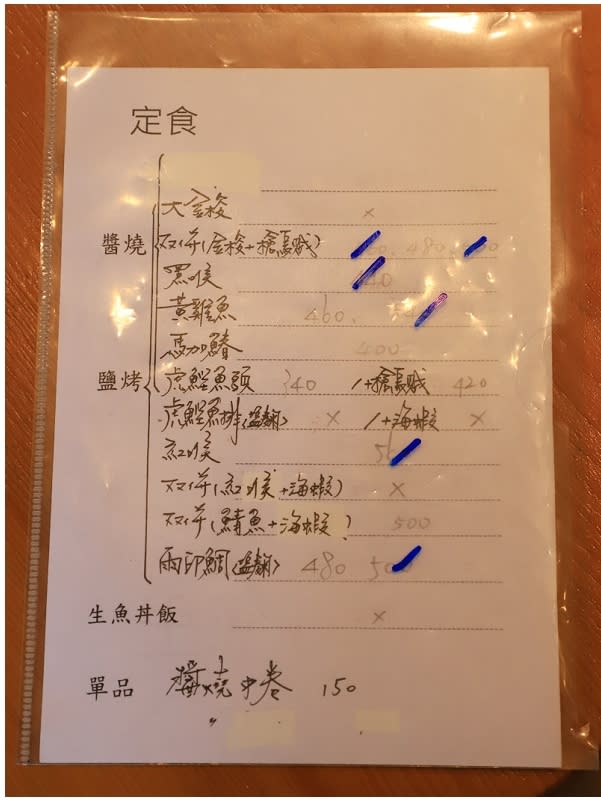 定食
大金梭 ×
醬燒 双併(金梭+槍烏賊) 480.
黑喉
黃雞魚 460.
馬加鰆 400
鹽烤 虎鰹魚頭 340 /+槍烏賊 420
虎鰹魚排(鹽麴) × /+海蝦 ×
紅喉
双併(紅喉+海蝦) ×
双併(鯖魚+海蝦) 500
雨印鯛(鹽麴) 480
生魚丼飯 ×
單品 醬燒中卷 150